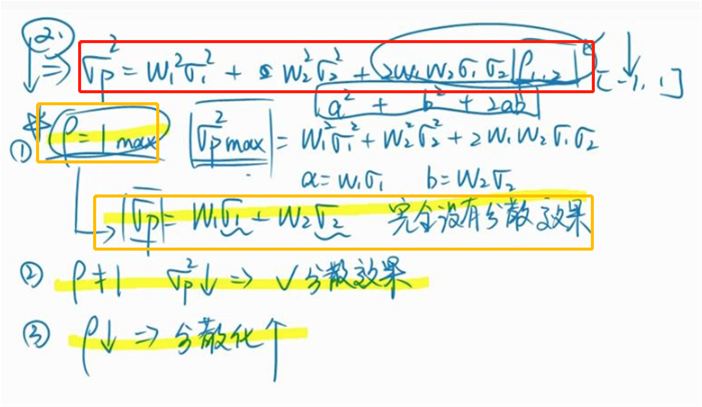 2.
↓⇒ σp² = W₁²σ₁² + W₂²σ₂² + 2W₁W₂σ₁σ₂ρ₁,₂ [-1, 1]
a² + b² + 2ab
① ρ=1 max σ²p max = W₁²σ₁² + W₂²σ₂² + 2W₁W₂σ₁σ₂
a=W₁σ₁ b=W₂σ₂
→ |σp| = W₁σ₁ + W₂σ₂ 完全没有分散效果
② ρ≠1 σp²↓ ⇒ √分散效果
③ ρ↓ ⇒ 分散化↑